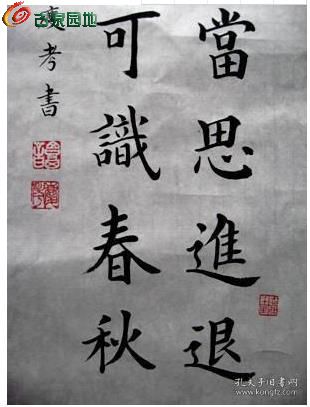 當思進退
可識春秋
考書
古泉园地
孔夫子旧书网
www.kongfz.com